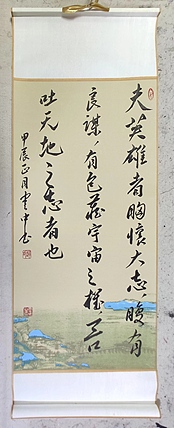 夫英雄者胸怀大志腹有
良谋有包藏宇宙之机吞
吐天地之志者也
甲辰正月云中书